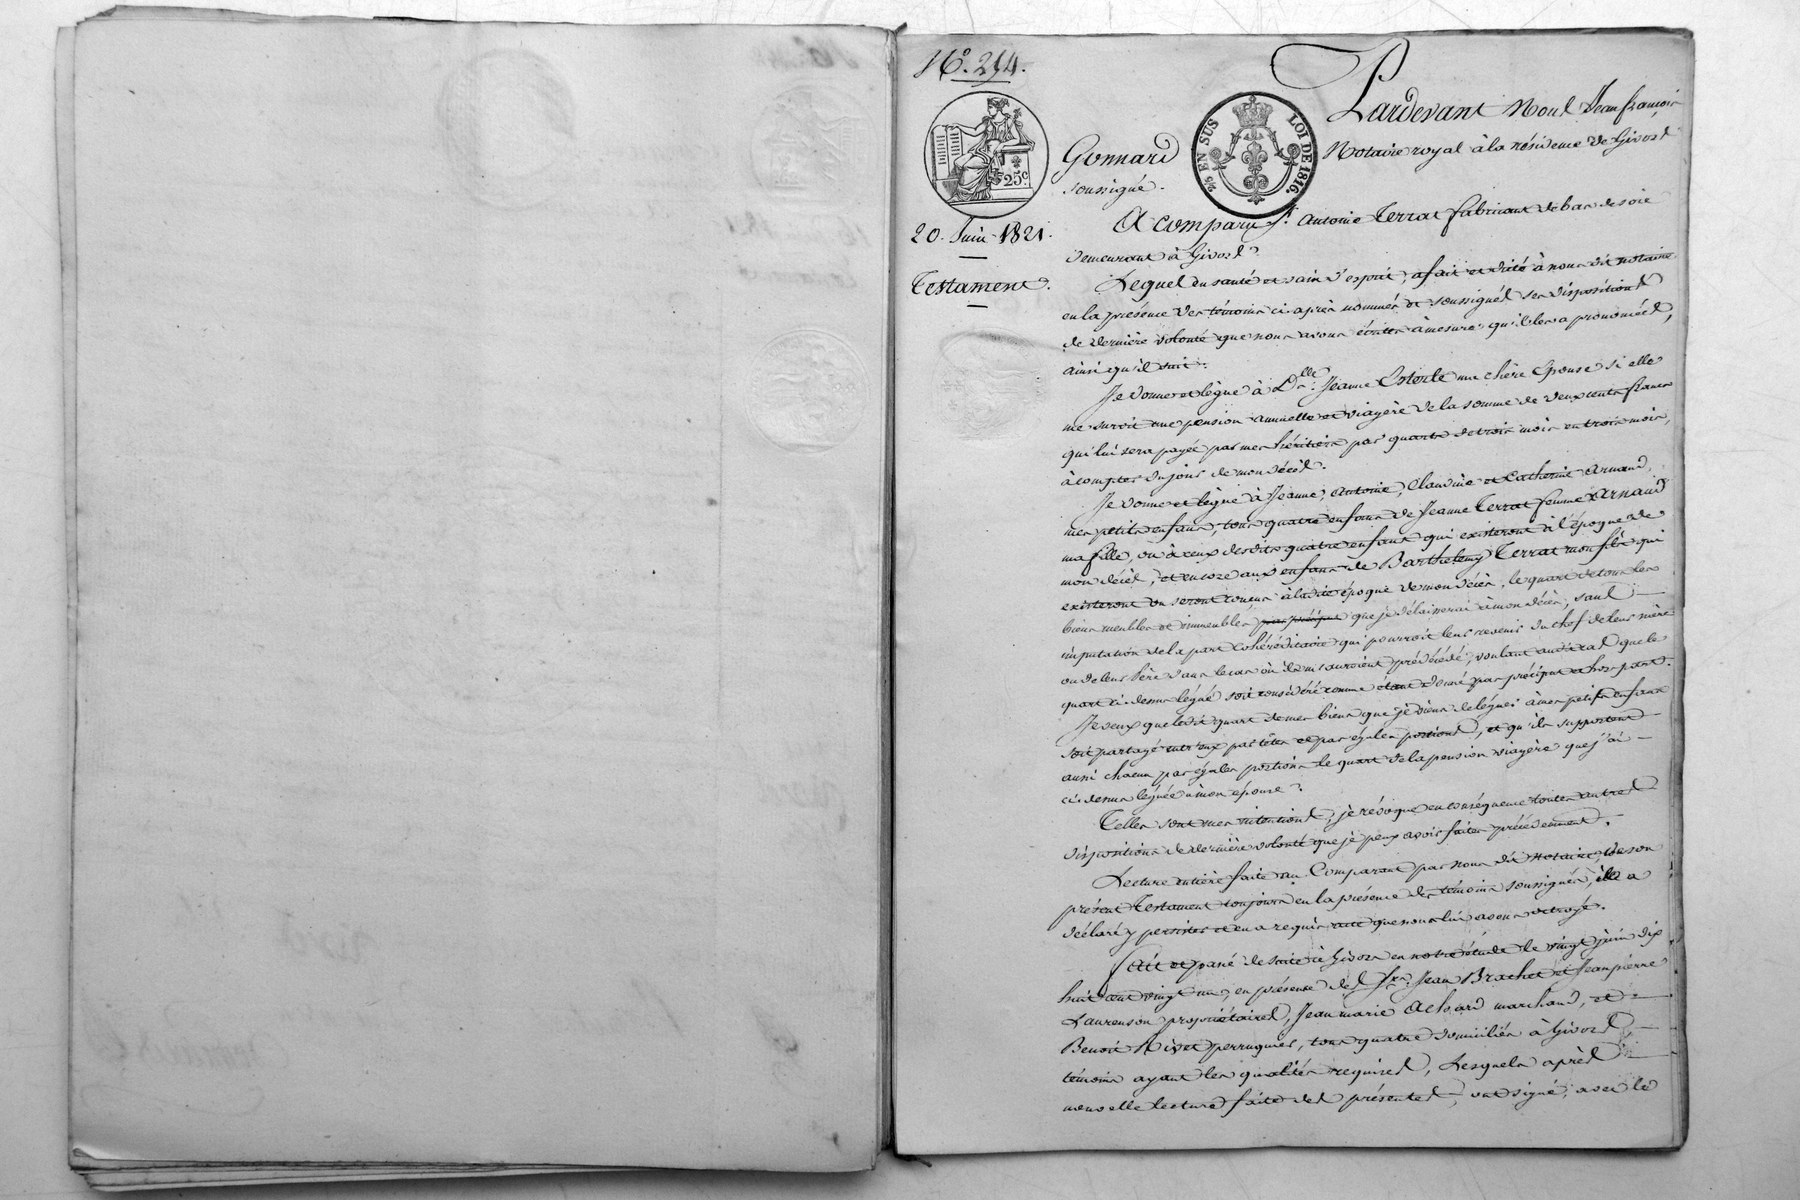 N.° 254.
25c
25c EN SUS LOI DE 1816.
20. Juin 1821.
Testament.
Pardevant Nous Jean françois
Gonnard Notaire royal à la résidence de Givors
soussigné.
A comparu S.r Antoine Terrat fabricant de bas de soie
demeurant à Givors.
Lequel en santé et sain d'esprit, a fait et dicté à nous dit notaire
en la présence des témoins ci-après nommés et soussignés ses dispositions
de dernière volonté que nous avons écrites à mesure qu'il les a prononcées,
ainsi qu'il suit.
Je donne et lègue à D.lle Jeanne ma chère Epouse si elle
me survit une pension annuelle et viagère de la somme de deux cents francs
qui lui sera payée par mes héritiers par quarts de trois mois en trois mois,
à compter du jour de mon décès.
Je donne et lègue à Jeanne, Antoine, Claudine et Catherine Arnaud,
mes petits enfans, tous quatre enfans de Jeanne Terrat femme Arnaud
ma fille, ou à ceux desdits quatre enfans qui existeront à l'époque de
mon décès, et encore aux enfans de Barthelemy Terrat mon fils qui
existeront ou seront conçus à ladite époque de mon décès, le quart de tous les
biens meubles et immeubles par préciput que je délaisserai à mon décès, sauf
imputation de la part cohéréditaire qui pourroit leur revenir du chef de leur mère
ou de leur Père dans le cas où ils m'auroient prédécédé, voulant que le
quart ci dessus légué soit considéré comme étant donné par préciput et hors part.
Je veux que ledit quart de mes biens que je viens de léguer à mes petits enfans
soit partagé entr'eux par têtes et par égales portions, et qu'ils supportent
aussi chacun par égales portions le quart de la pension viagère que j'ai
ci-dessus léguée à mon épouse.
Telles sont mes intentions, je révoque en conséquence toutes autres
dispositions de dernière volonté que je peux avoir faites précédemment.
Lecture entière faite au Comparant par nous dit notaire, de son
présent Testament toujours en la présence des témoins soussignés, il a
déclaré y persister et en a requis acte que nous lui avons octroyé.
Fait et passé de suite à Givors en notre étude le vingt juin dix
huit cent vingt un, en présence des S.rs Jean Brachet et Jean pierre
Laurenson propriétaires, Jean marie Achard marchand, et
Benoit Rivet perruquier, tous quatre domiciliés à Givors,
témoins ayant les qualités requises, lesquels après
nouvelle lecture faite des présentes, ont signé, avec le